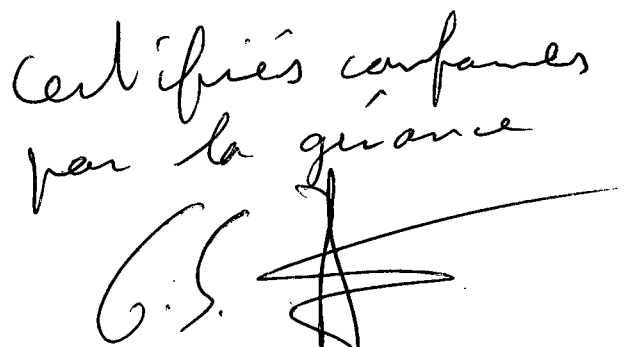 certifiés conformes
par la gérance
G.S.